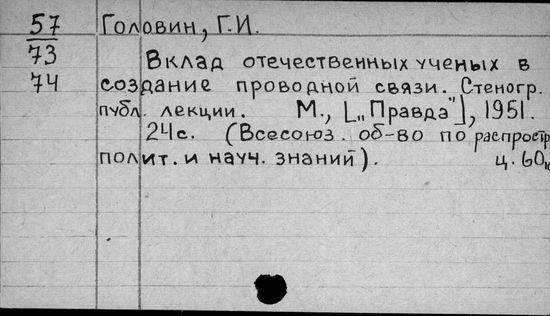 57 Головин, Г.И.
73 Вклад отечественных ученых в
74 создание проводной связи. Стеногр.
публ. лекции. М., [„Правда"], 1951.
24с. (Всесоюз. об-во по распростр
полит. и науч. знаний). ц. 60к